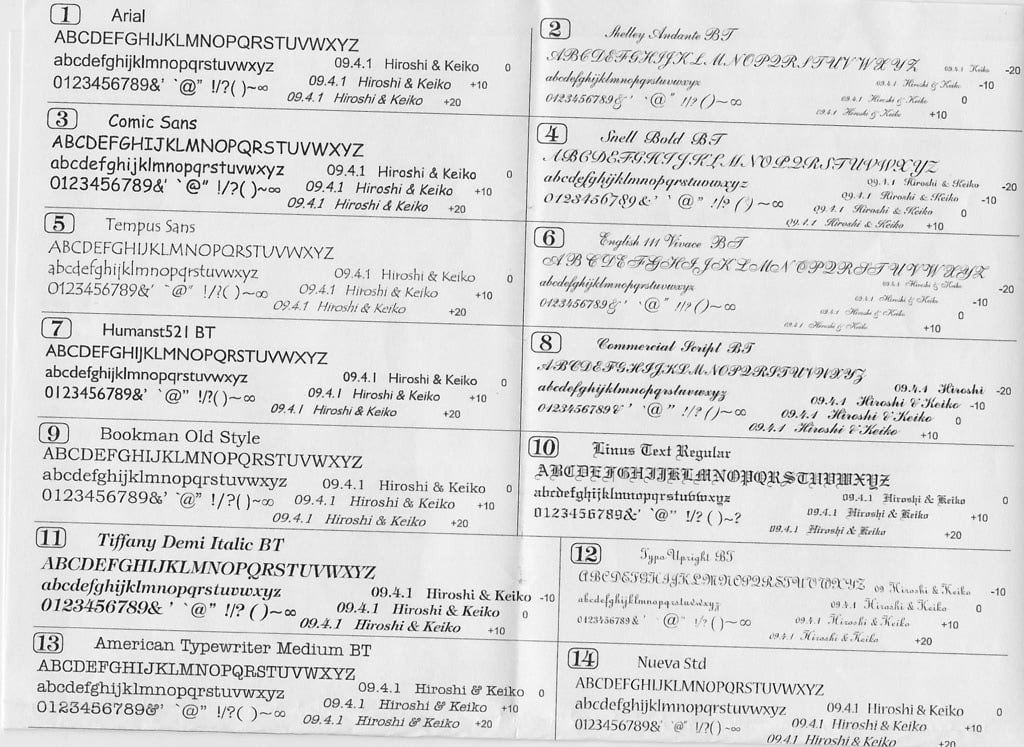 1 Arial
ABCDEFGHIJKLMNOPQRSTUVWXYZ
abcdefghijklmnopqrstuvwxyz 09.4.1 Hiroshi & Keiko 0
0123456789&' `@" !/?( )~∞ 09.4.1 Hiroshi & Keiko +10
09.4.1 Hiroshi & Keiko +20
3 Comic Sans
ABCDEFGHIJKLMNOPQRSTUVWXYZ
abcdefghijklmnopqrstuvwxyz 09.4.1 Hiroshi & Keiko 0
0123456789&' `@" !/?( )~∞ 09.4.1 Hiroshi & Keiko +10
09.4.1 Hiroshi & Keiko +20
5 Tempus Sans
ABCDEFGHIJKLMNOPQRSTUVWXYZ
abcdefghijklmnopqrstuvwxyz 09.4.1 Hiroshi & Keiko 0
0123456789&' `@" !/?( )~∞ 09.4.1 Hiroshi & Keiko +10
09.4.1 Hiroshi & Keiko +20
7 Humanst521 BT
ABCDEFGHIJKLMNOPQRSTUVWXYZ
abcdefghijklmnopqrstuvwxyz 09.4.1 Hiroshi & Keiko 0
0123456789&' `@" !/?( )~∞ 09.4.1 Hiroshi & Keiko +10
09.4.1 Hiroshi & Keiko +20
9 Bookman Old Style
ABCDEFGHIJKLMNOPQRSTUVWXYZ
abcdefghijklmnopqrstuvwxyz 09.4.1 Hiroshi & Keiko 0
0123456789&' `@" !/?( )~∞ 09.4.1 Hiroshi & Keiko +10
09.4.1 Hiroshi & Keiko +20
11 Tiffany Demi Italic BT
ABCDEFGHIJKLMNOPQRSTUVWXYZ
abcdefghijklmnopqrstuvwxyz 09.4.1 Hiroshi & Keiko -10
0123456789& ' `@" !/? ( )~∞ 09.4.1 Hiroshi & Keiko 0
09.4.1 Hiroshi & Keiko +10
13 American Typewriter Medium BT
ABCDEFGHIJKLMNOPQRSTUVWXYZ
abcdefghijklmnopqrstuvwxyz 09.4.1 Hiroshi & Keiko 0
0123456789&' `@" !/?( )~∞ 09.4.1 Hiroshi & Keiko +10
09.4.1 Hiroshi & Keiko +20
2 Shelley Andante BT
ABCDEFGHIJKLMNOPQRSTUVWXYZ 09.4.1 Keiko -20
abcdefghijklmnopqrstuvwxyz 09.4.1 Hiroshi & Keiko -10
0123456789&' `@" !/?( )~∞ 09.4.1 Hiroshi & Keiko 0
09.4.1 Hiroshi & Keiko +10
4 Snell Bold BT
ABCDEFGHIJKLMNOPQRSTUVWXYZ
abcdefghijklmnopqrstuvwxyz 09.4.1 Hiroshi & Keiko -20
0123456789&' `@" !/? ( )~∞ 09.4.1 Hiroshi & Keiko -10
09.4.1 Hiroshi & Keiko 0
09.4.1 Hiroshi & Keiko +10
6 English 111 Vivace BT
ABCDEFGHIJKLMNOPQRSTUVWXYZ
abcdefghijklmnopqrstuvwxyz 09.4.1 Hiroshi & Keiko -20
0123456789&' `@" !/? ( )~∞ 09.4.1 Hiroshi & Keiko -10
09.4.1 Hiroshi & Keiko 0
09.4.1 Hiroshi & Keiko +10
8 Commercial Script BT
ABCDEFGHIJKLMNOPQRSTUVWXYZ
abcdefghijklmnopqrstuvwxyz 09.4.1 Hiroshi -20
0123456789&' `@" !/?( )~∞ 09.4.1 Hiroshi & Keiko -10
09.4.1 Hiroshi & Keiko 0
09.4.1 Hiroshi & Keiko +10
10 Linus Text Regular
ABCDEFGHIJKLMNOPQRSTUVWXYZ
abcdefghijklmnopqrstuvwxyz 09.4.1 Hiroshi & Keiko 0
0123456789&' `@" !/?( )~? 09.4.1 Hiroshi & Keiko +10
09.4.1 Hiroshi & Keiko +20
12 Typo Upright BT
ABCDEFGHIJKLMNOPQRSTUVWXYZ 09 Hiroshi & Keiko -10
abcdefghijklmnopqrstuvwxyz 09.4.1 Hiroshi & Keiko 0
0123456789& ' `@" !/? ( )~∞ 09.4.1 Hiroshi & Keiko +10
09.4.1 Hiroshi & Keiko +20
14 Nueva Std
ABCDEFGHIJKLMNOPQRSTUVWXYZ
abcdefghijklmnopqrstuvwxyz 09.4.1 Hiroshi & Keiko 0
0123456789&' `@" !/?( )~∞ 09.4.1 Hiroshi & Keiko +10
09.4.1 Hiroshi & Keiko +20